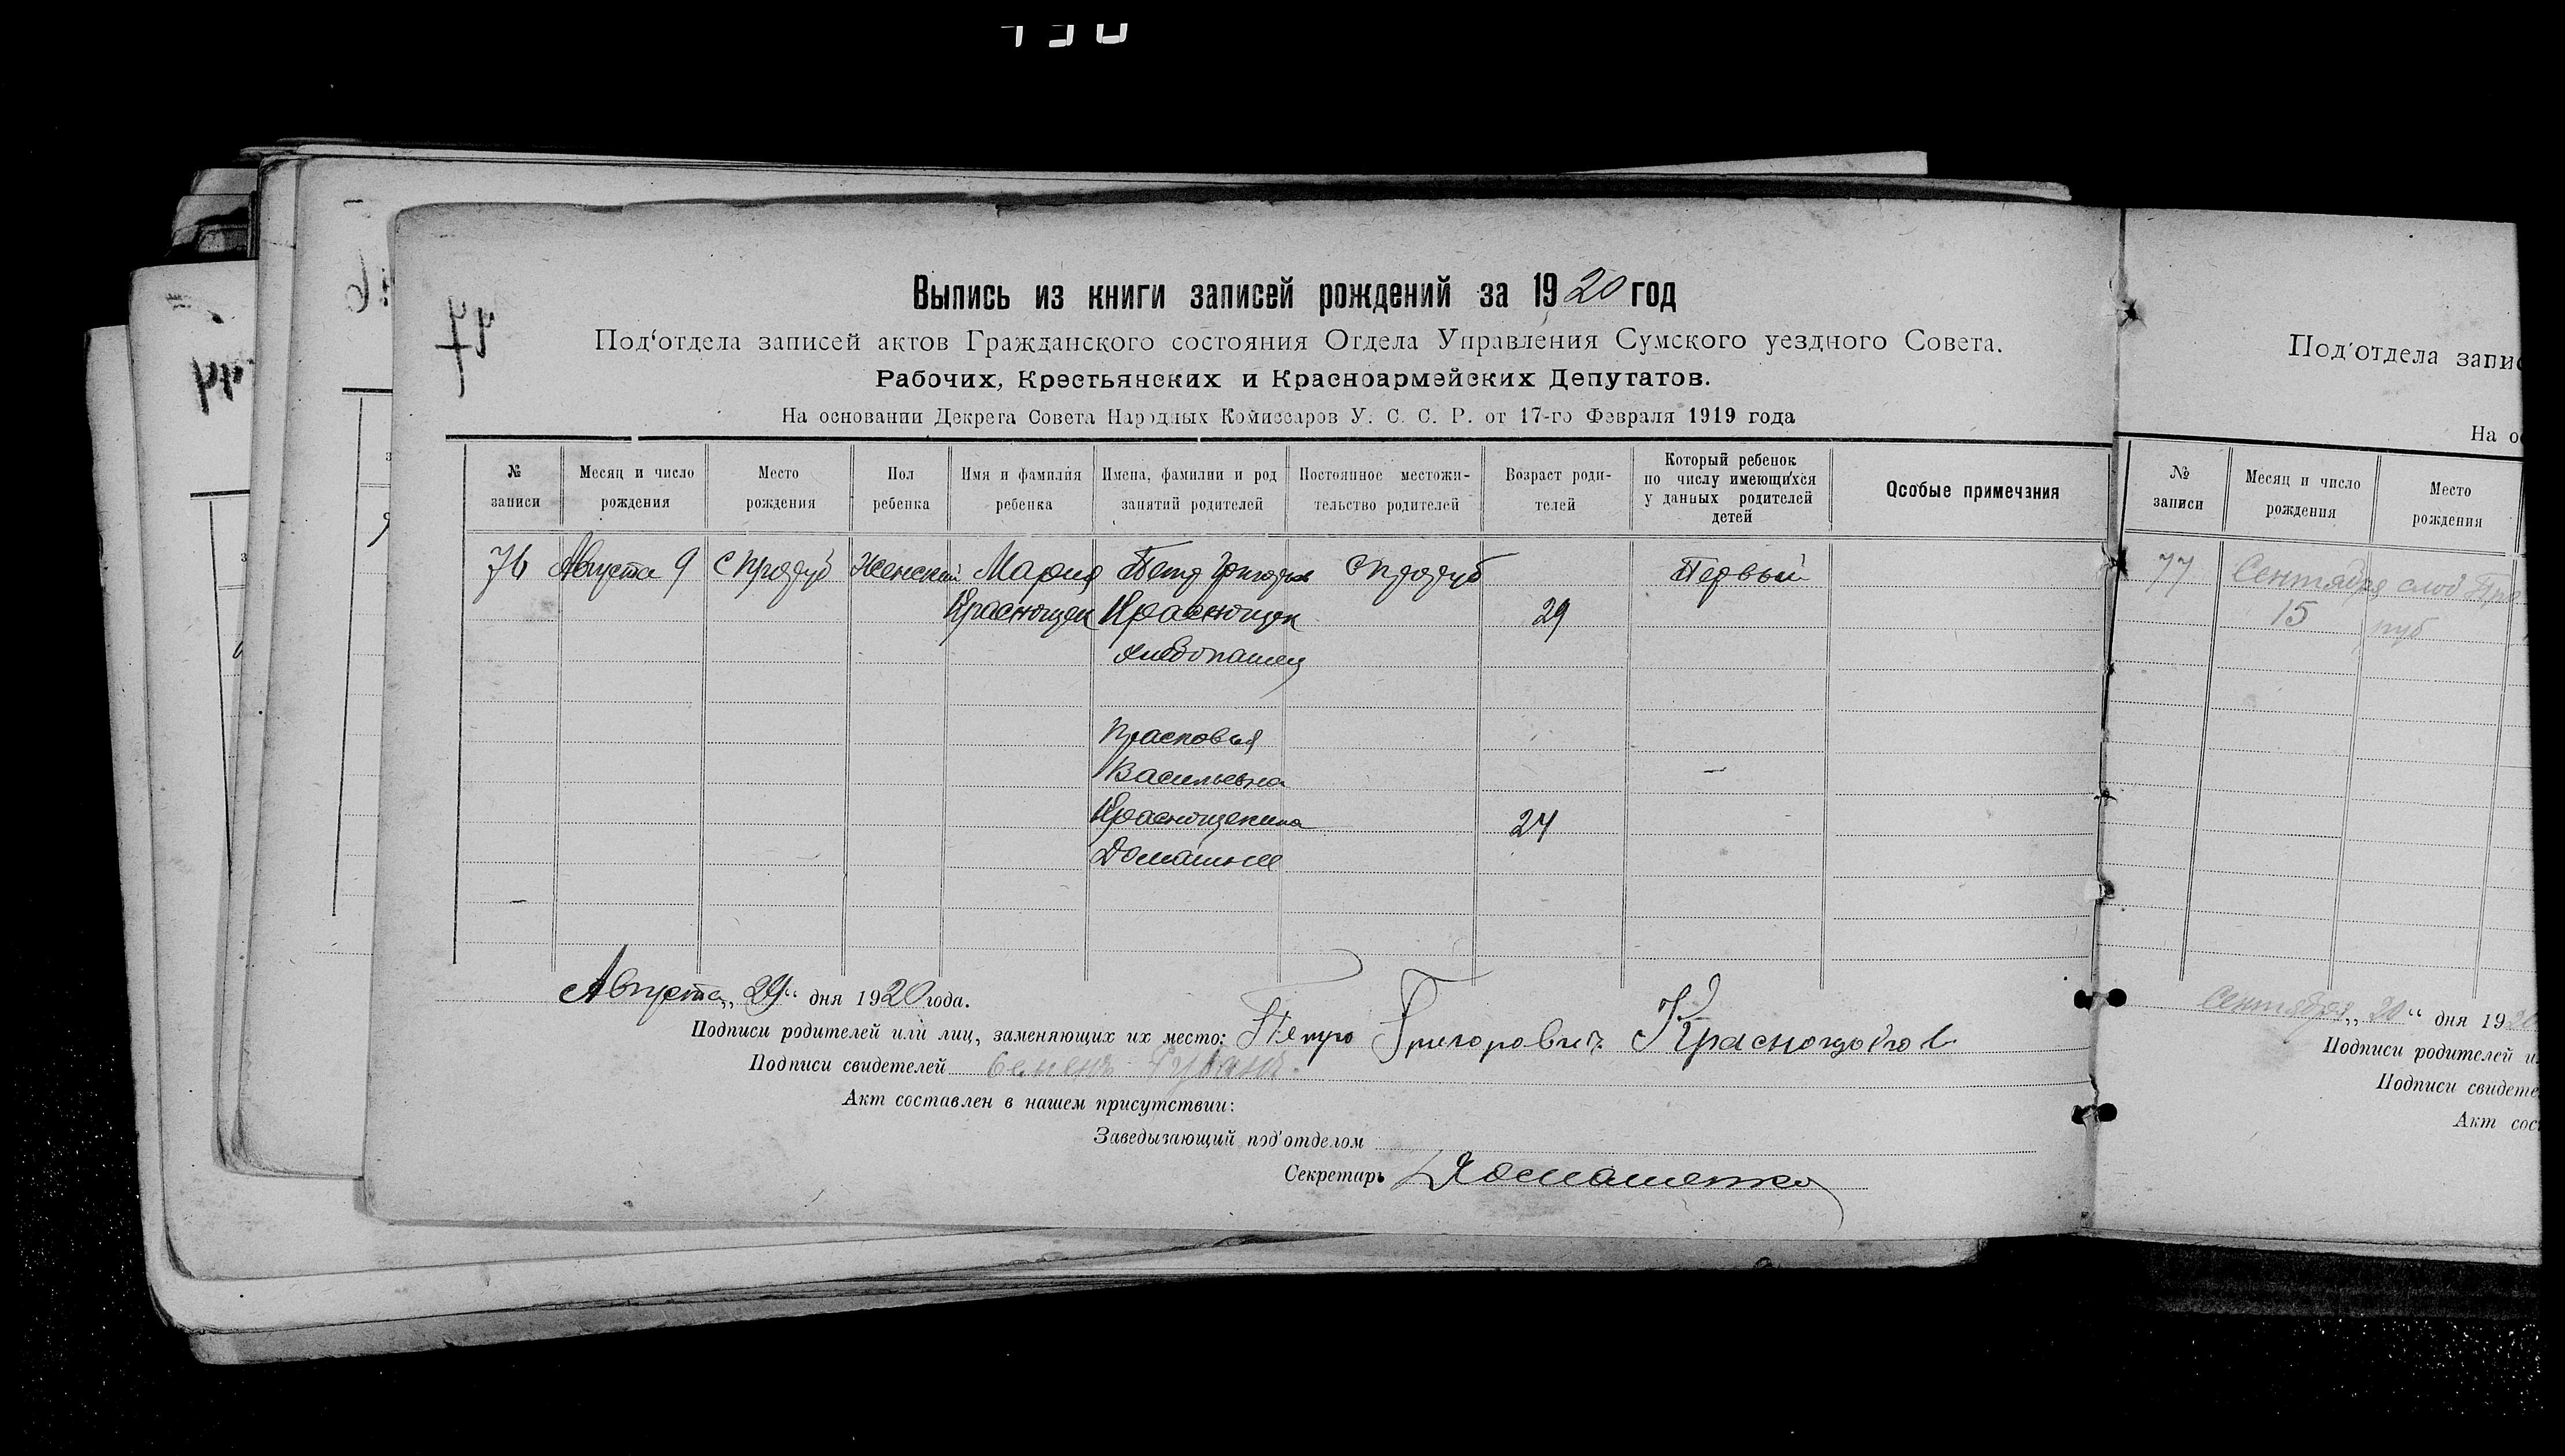 Выпись из книги записей рождений за 1920 год
Под‘отдела записей актов Гражданского состояния Отдела Управления Сумского уездного Совета.
Рабочих, Крестьянских и Красноармейских Депутатов.
На основании Декрета Совета Народных Комиссаров У. С. С. Р. от 17-го Февраля 1919 года
№ записи
Месяц и число рождения
Место рождения
Пол ребенка
Имя и фамилия ребенка
Имена, фамилии и род занятий родителей
Постоянное местожительство родителей
Возраст родителей
Который ребенок по числу имеющихся у данных родителей детей
Особые примечания
76 Августа 9 Женский Мария Петр Первый
Краснощек Краснощек 29
хлебопашец
Прасковья
Васильевна
Краснощекина 24
Домашнее
Августа „29“ дня 1920 года.
Подписи родителей или лиц, заменяющих их место: Петро Григорович
Подписи свидетелей Семен Рубан
Акт составлен в нашем присутствии:
Заведызающий под‘отделом
Секретарь Домашенко
Под‘отдела
На
№ записи
Месяц и число рождения
Место рождения
77 Сентября слод
15 руб
Сентября „20“ дня 1920
Подписи родителей
Подписи
Акт